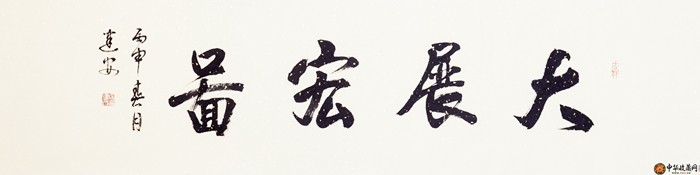 大展宏图
丙申春月
建安
中华收藏网